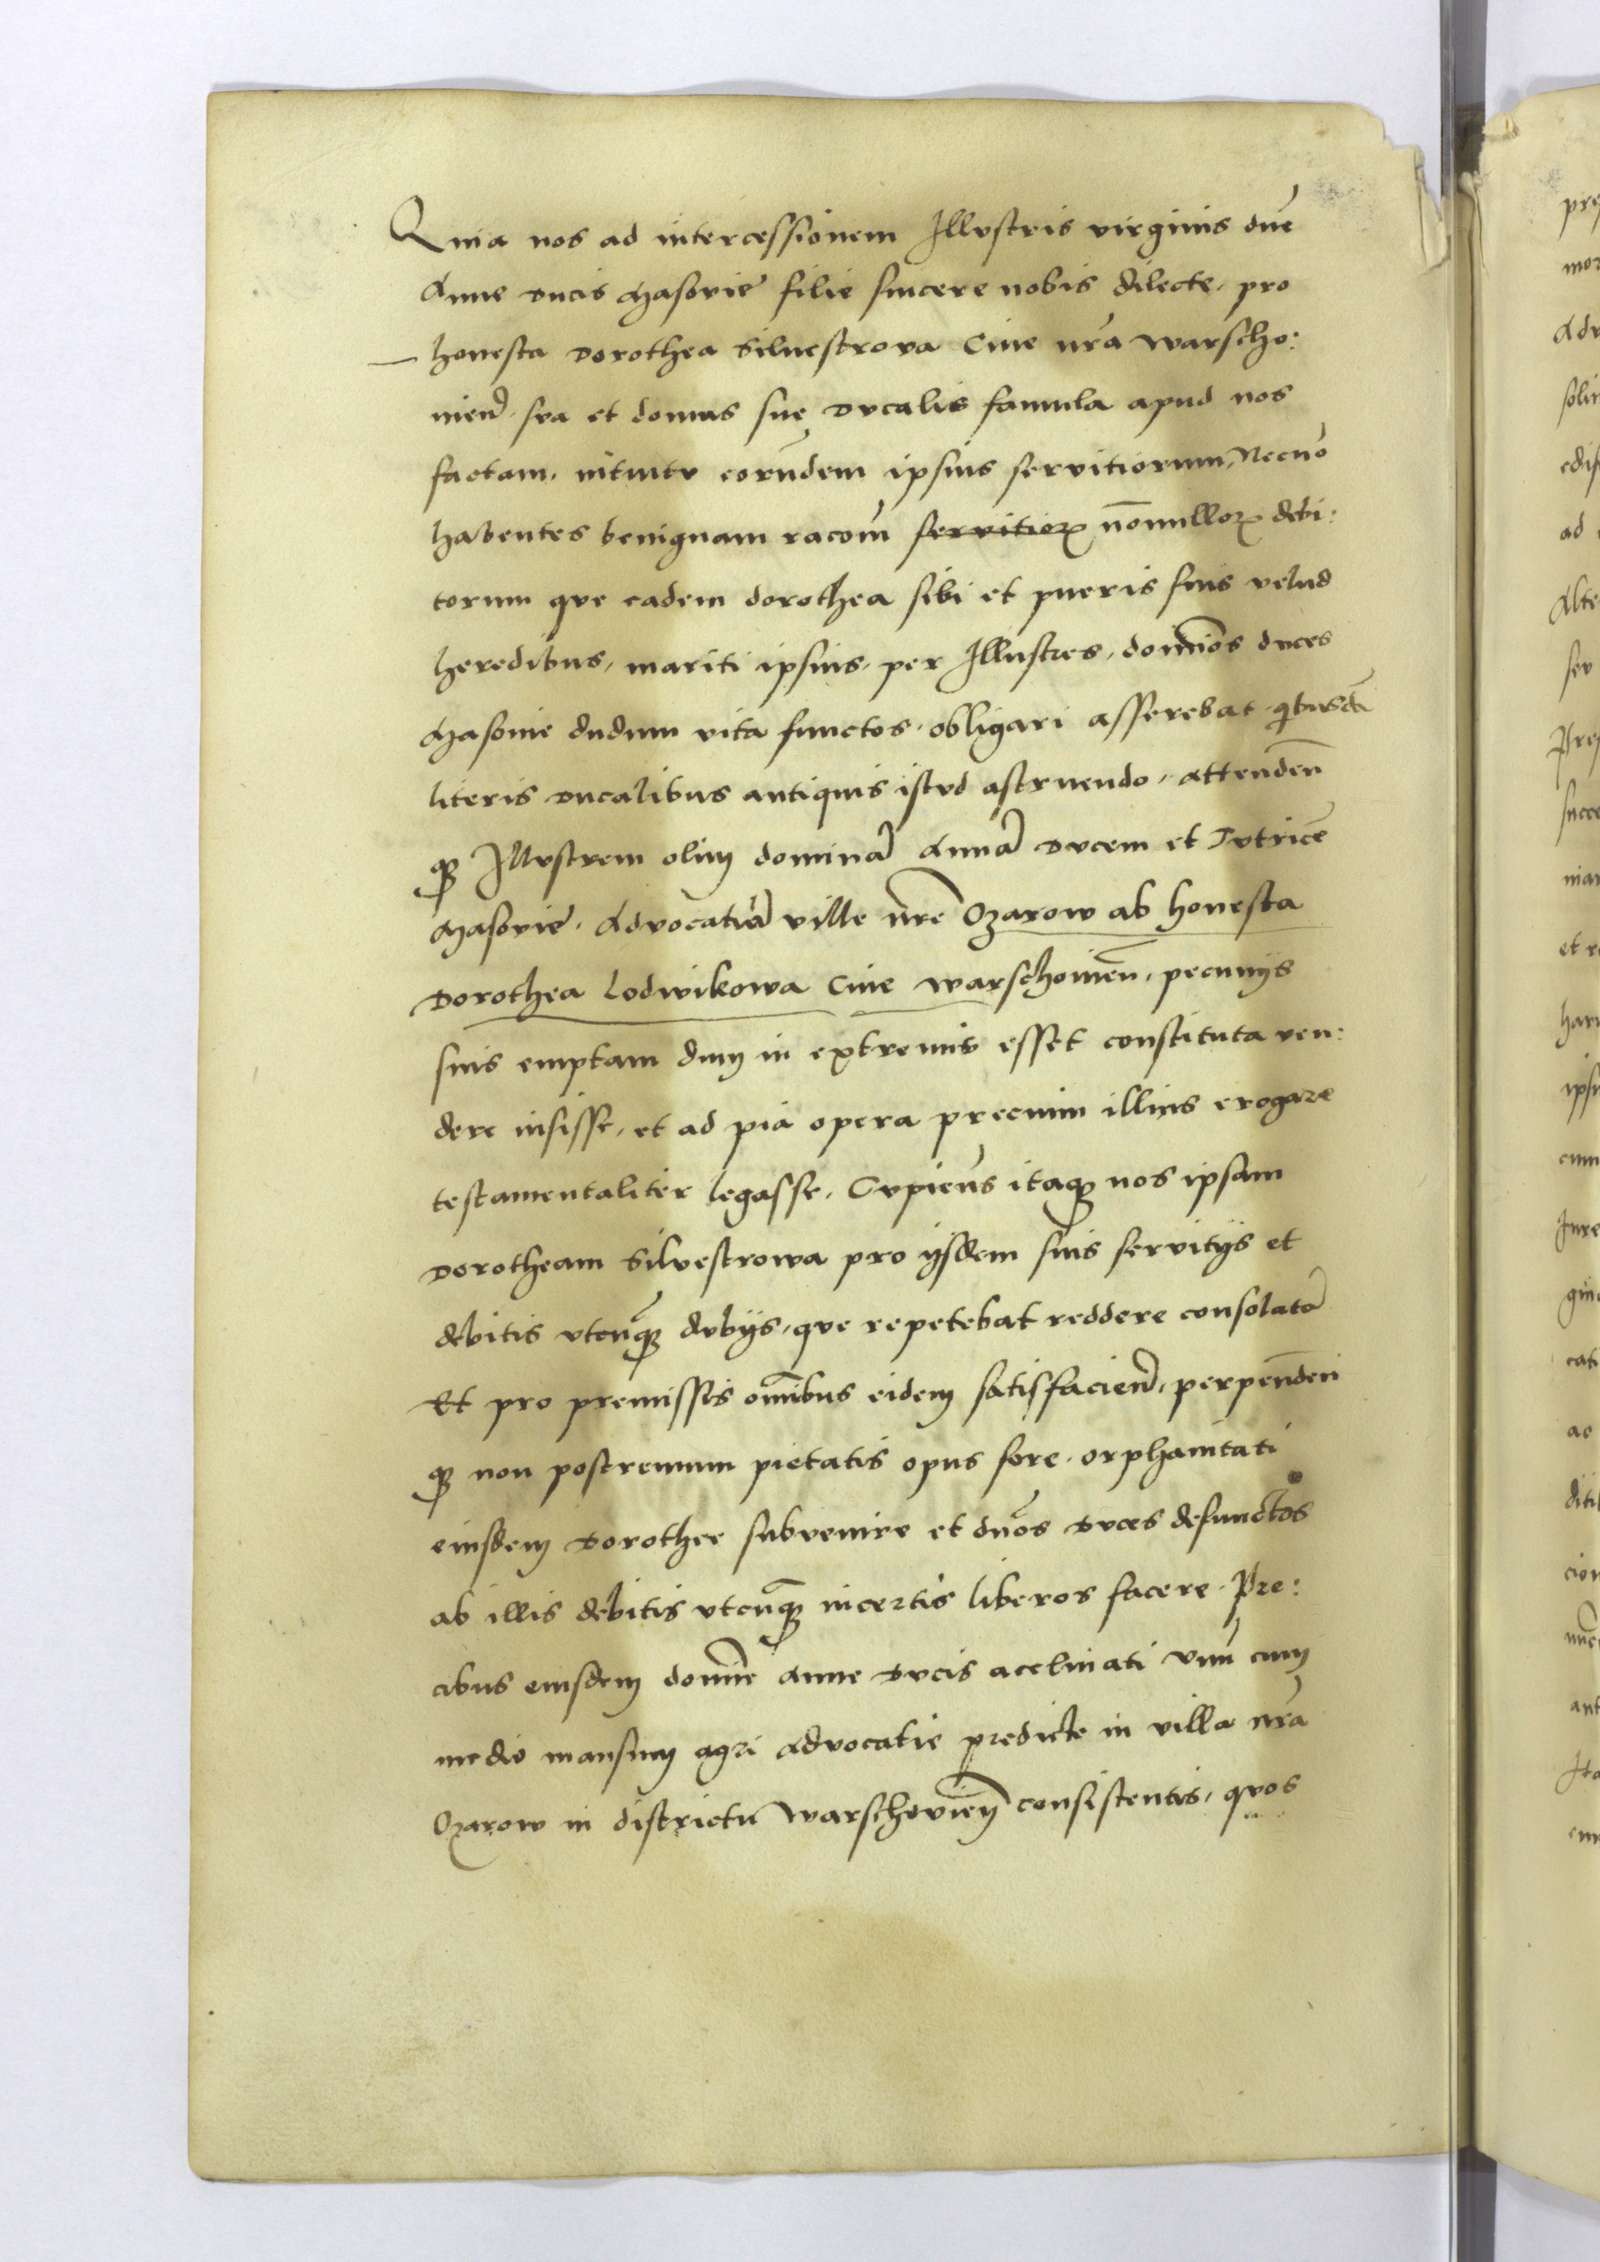 Quia nos ad intercessionem Illustris virginis dne
Anne Ducis Masovie filie sincere nobis dilecte, pro
honesta Dorothea Silvestrova Cive nra Warscho:
vien. sua et domus sue Ducalis famula apud nos
factam, intuitu eorundem ipsius servitiorum, Necno
habentes benignam racom servitior nonnullor debi:
torum que eadem dorothea sibi et pueris suis velud
heredibus, mariti ipsius, per Illustres, dominos duces
Masovie dudum vita functos, obligari asserebat, quibusda
literis Ducalibus antiquis istud astruendo, Attenden
q Illustrem olim domina Anna Ducem et Tutrice
Masovie, Advocatia ville nre Ozarow ab honesta
Dorothea Lodwikowa Cive Warschovien, pecunijs
suis emptam dum in extremis esset constituta ven:
dere iusisse, et ad pia opera precium illius erogare
testamentaliter legasse, Cupiens itaq nos ipsam
Dorotheam Silvestrowa pro ijsdem suis servitijs et
debitis utcunq dubijs, que repetebat reddere consolata
Et pro premissis omnibus eidem satisfacien, perpenden
q non postremum pietatis opus fore, orphanitati
eiusdem Dorothee subvenire et dnos Duces defunctos
ab illis debitis utcunq incertis liberos facere, Pre:
cibus eiusdem domine Anne Ducis acclinati Unu cum
medio mansum agri Advocatie predicte in villa nra
Ozarow in districtu Warschovien consistentis, quos
pre
mor
Adv
solin
ad
Alte
seu
succe
et re
ipsi
cum
Jure
cati
ac
diti
cion
ant